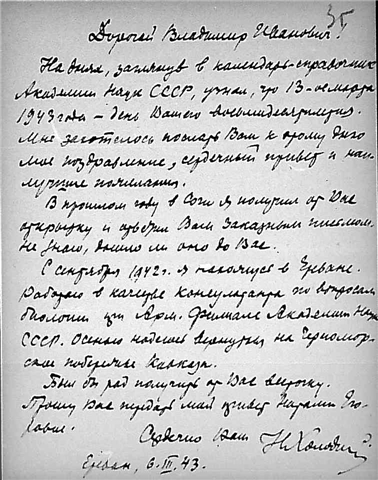 35
Дорогой Владимир Иванович!
На днях, заглянув в календарь-справочник
Академии Наук СССР, узнал, что 13-ое марта
1943 года – день Вашего восьмидесятилетия.
Мне захотелось послать Вам к этому дню
мое поздравление, сердечный привет и наи-
лучшие пожелания.
В прошлом году в Сочи я получил от Вас
открытку и ответил Вам заказным письмом.
Не знаю, дошло ли оно до Вас.
С сентября 1942 г. я нахожусь в Ереване.
Работаю в качестве консультанта по вопросам
биологии при Арм. Филиале Академии Наук
СССР. Осенью надеюсь вернуться на Черномор-
ское побережье Кавказа.
Был бы рад получить от Вас весточку.
Прошу Вас передать мой привет Наталии Его-
ровне.
Сердечно Ваш Н. Холодный
Ереван, 6.III.43.